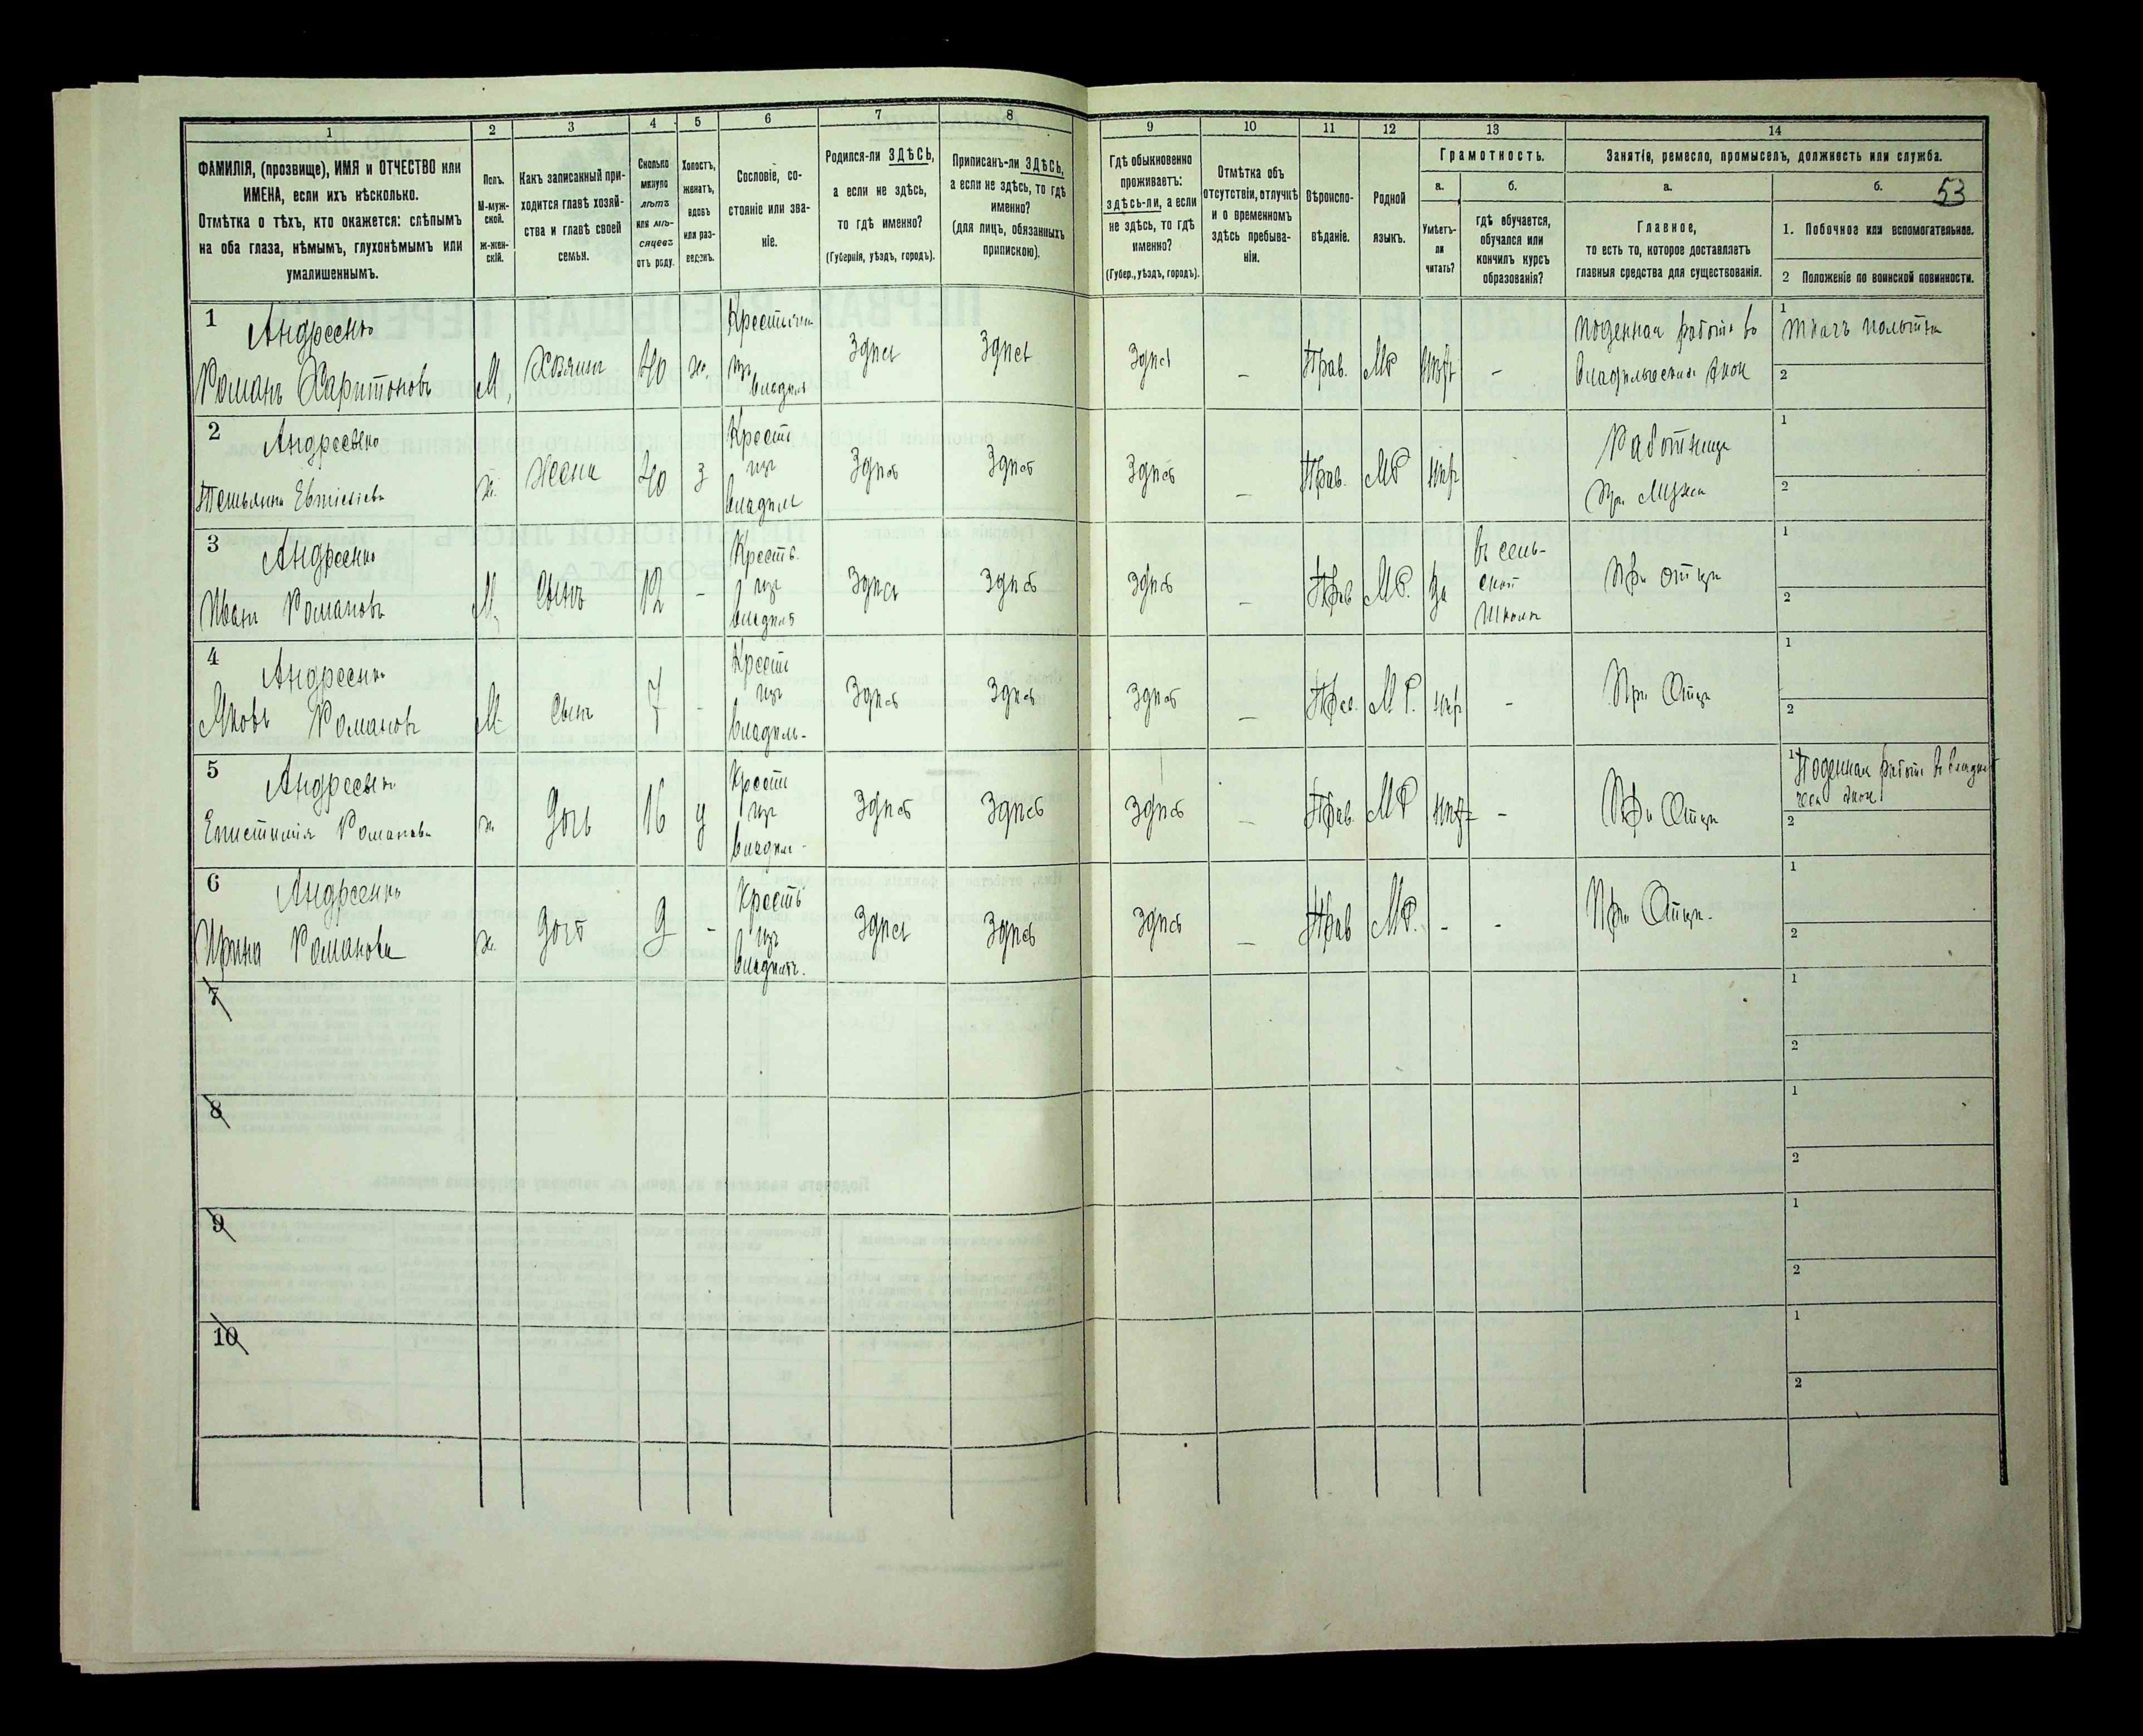 1
2
3
4
5
6
7
8
ФАМИЛІЯ, (прозвище), ИМЯ и ОТЧЕСТВО или
ИМЕНА, если ихъ нѣсколько.
Отмѣтка о тѣхъ, кто окажется: слѣпымъ
на оба глаза, нѣмымъ, глухонѣмымъ или
умалишеннымъ.
Полъ.
М-муж-
ской.
Ж-жен-
скій.
Какъ записанный при-
ходится главѣ хозяй-
ства и главѣ своей
семьи.
Сколько
минуло
лѣтъ
или мѣ-
сяцевъ
отъ роду.
Холостъ,
женатъ,
вдовъ
или раз-
веденъ.
Сословіе, со-
стояніе или зва-
ніе.
Родился-ли ЗДѢСЬ,
а если не здѣсь,
то гдѣ именно?
(Губернія, уѣздъ, городъ).
Приписанъ-ли ЗДѢСЬ,
а если не здѣсь, то гдѣ
именно?
(для лицъ, обязанныхъ
припискою).
9
10
11
12
13
14
Гдѣ обыкновенно
проживаетъ:
здѣсь-ли, а если
не здѣсь, то гдѣ
именно?
(Губер., уѣздъ, городъ).
Отмѣтка объ
отсутствіи, отлучкѣ
и о временномъ
здѣсь пребыва-
ніи.
Вѣроиспо-
вѣданіе.
Родной
языкъ.
Грамотность.
а.
б.
Умѣетъ-
ли
читать?
гдѣ обучается,
обучался или
кончилъ курсъ
образованія?
Занятіе, ремесло, промыселъ, должность или служба.
а.
б.
53
Главное,
то есть то, которое доставляетъ
главныя средства для существованія.
1. Побочное или вспомогательное.
2 Положеніе по воинской повинности.
1
Андреенко
Романъ Харитоновъ
М.
Хозяинъ
40
ж.
Крестьянин
изъ
владѣл
Здѣсь
Здѣсь
Здѣсь
–
Прав.
МР
–
Поденная работа во
1
Ткачъ
2
2
Андреенко
Татьяна
ж.
Жена
40
з
Крест
изъ
владѣл
Здѣсь
Здѣсь
Здѣсь
–
Прав.
МР
Работница
При Мужѣ
1
2
3
Андреенко
Иванъ Романовъ
М.
Сынъ
12
–
Кресть.
изъ
владѣл
Здѣсь
Здѣсь
Здѣсь
–
Прав
МР.
да
въ сель-
ской
школѣ
При отцѣ
1
2
4
Андреенко
Яковъ Романовъ
М.
Сынъ
7
-
Крест
изъ
владѣль-
Здѣсь
Здѣсь
Здѣсь
–
Прав.
МР.
-
При Отцѣ
1
2
5
Андреенко
Епистимія Романова
ж.
Дочь
16
д
Крест
изъ
владѣл-
Здѣсь
Здѣсь
Здѣсь
–
Прав.
МР
–
При Отцѣ
1
Поденная работа
2
6
Андреенко
Ирина Романова
ж.
Дочь
9
-
Кресть
изъ
владѣль.
Здѣсь
Здѣсь
Здѣсь
–
Прав
МР.
-
-
При Отцѣ.
1
2
7
1
2
8
1
2
9
1
2
10
1
2